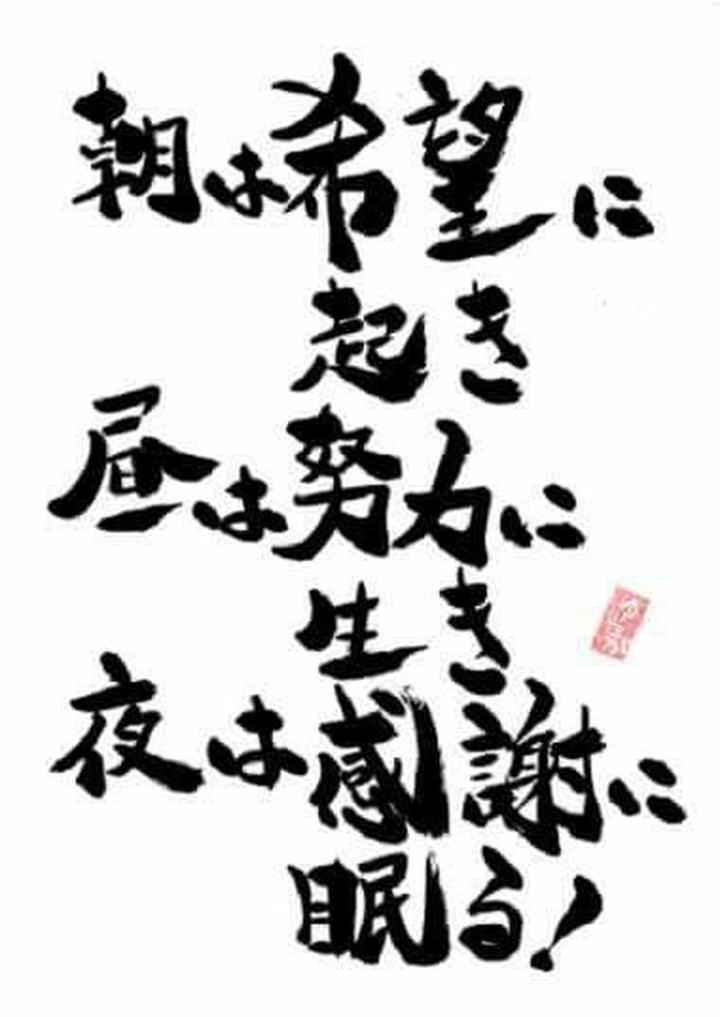 朝は希望に
起き
昼は努力に
生き
夜は感謝に
眠る!